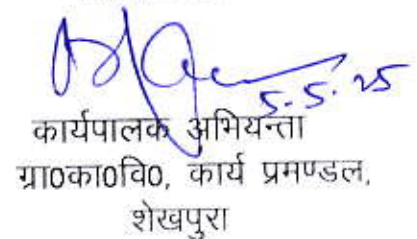 5.5.25
कार्यपालक अभियन्ता
ग्रा0का0वि0, कार्य प्रमण्डल,
शेखपुरा